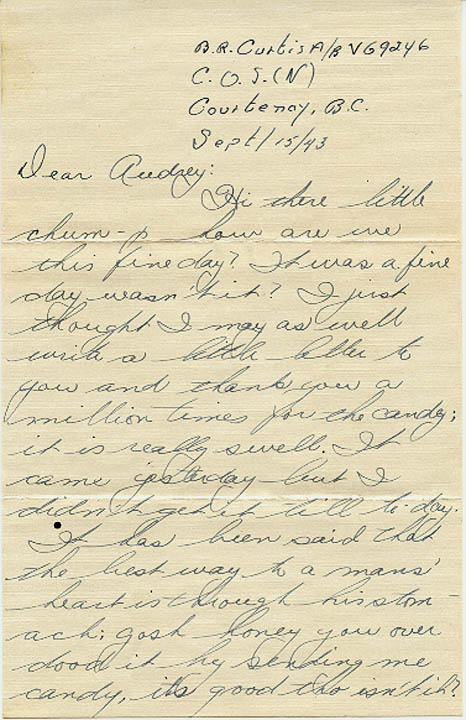 B.R. Curtis A/B V69246
C.O.S.(N)
Courtenay, B.C.
Sept/15/43
Dear Audrey:
Hi there little
chum-p how are we
this fine day? It was a fine
day wasn't it? I just
thought I may as well
write a little letter to
you and thank you a
million times for the candy;
it is really swell. It
came yesterday but I
didn't get it till to-day.
It has been said that
the best way to a mans'
heart is through his stom-
ach; gosh honey you over
dood it by sending me
candy, it's good tho isn't it?